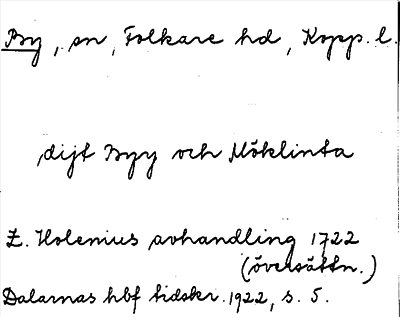 By, sn, Folkare hd, Kopp. l.
dijt Byy och Möklinta
E. Holenius avhandling 1722
(översättn.)
Dalarnas hbf tidskr. 1922, s. 5.